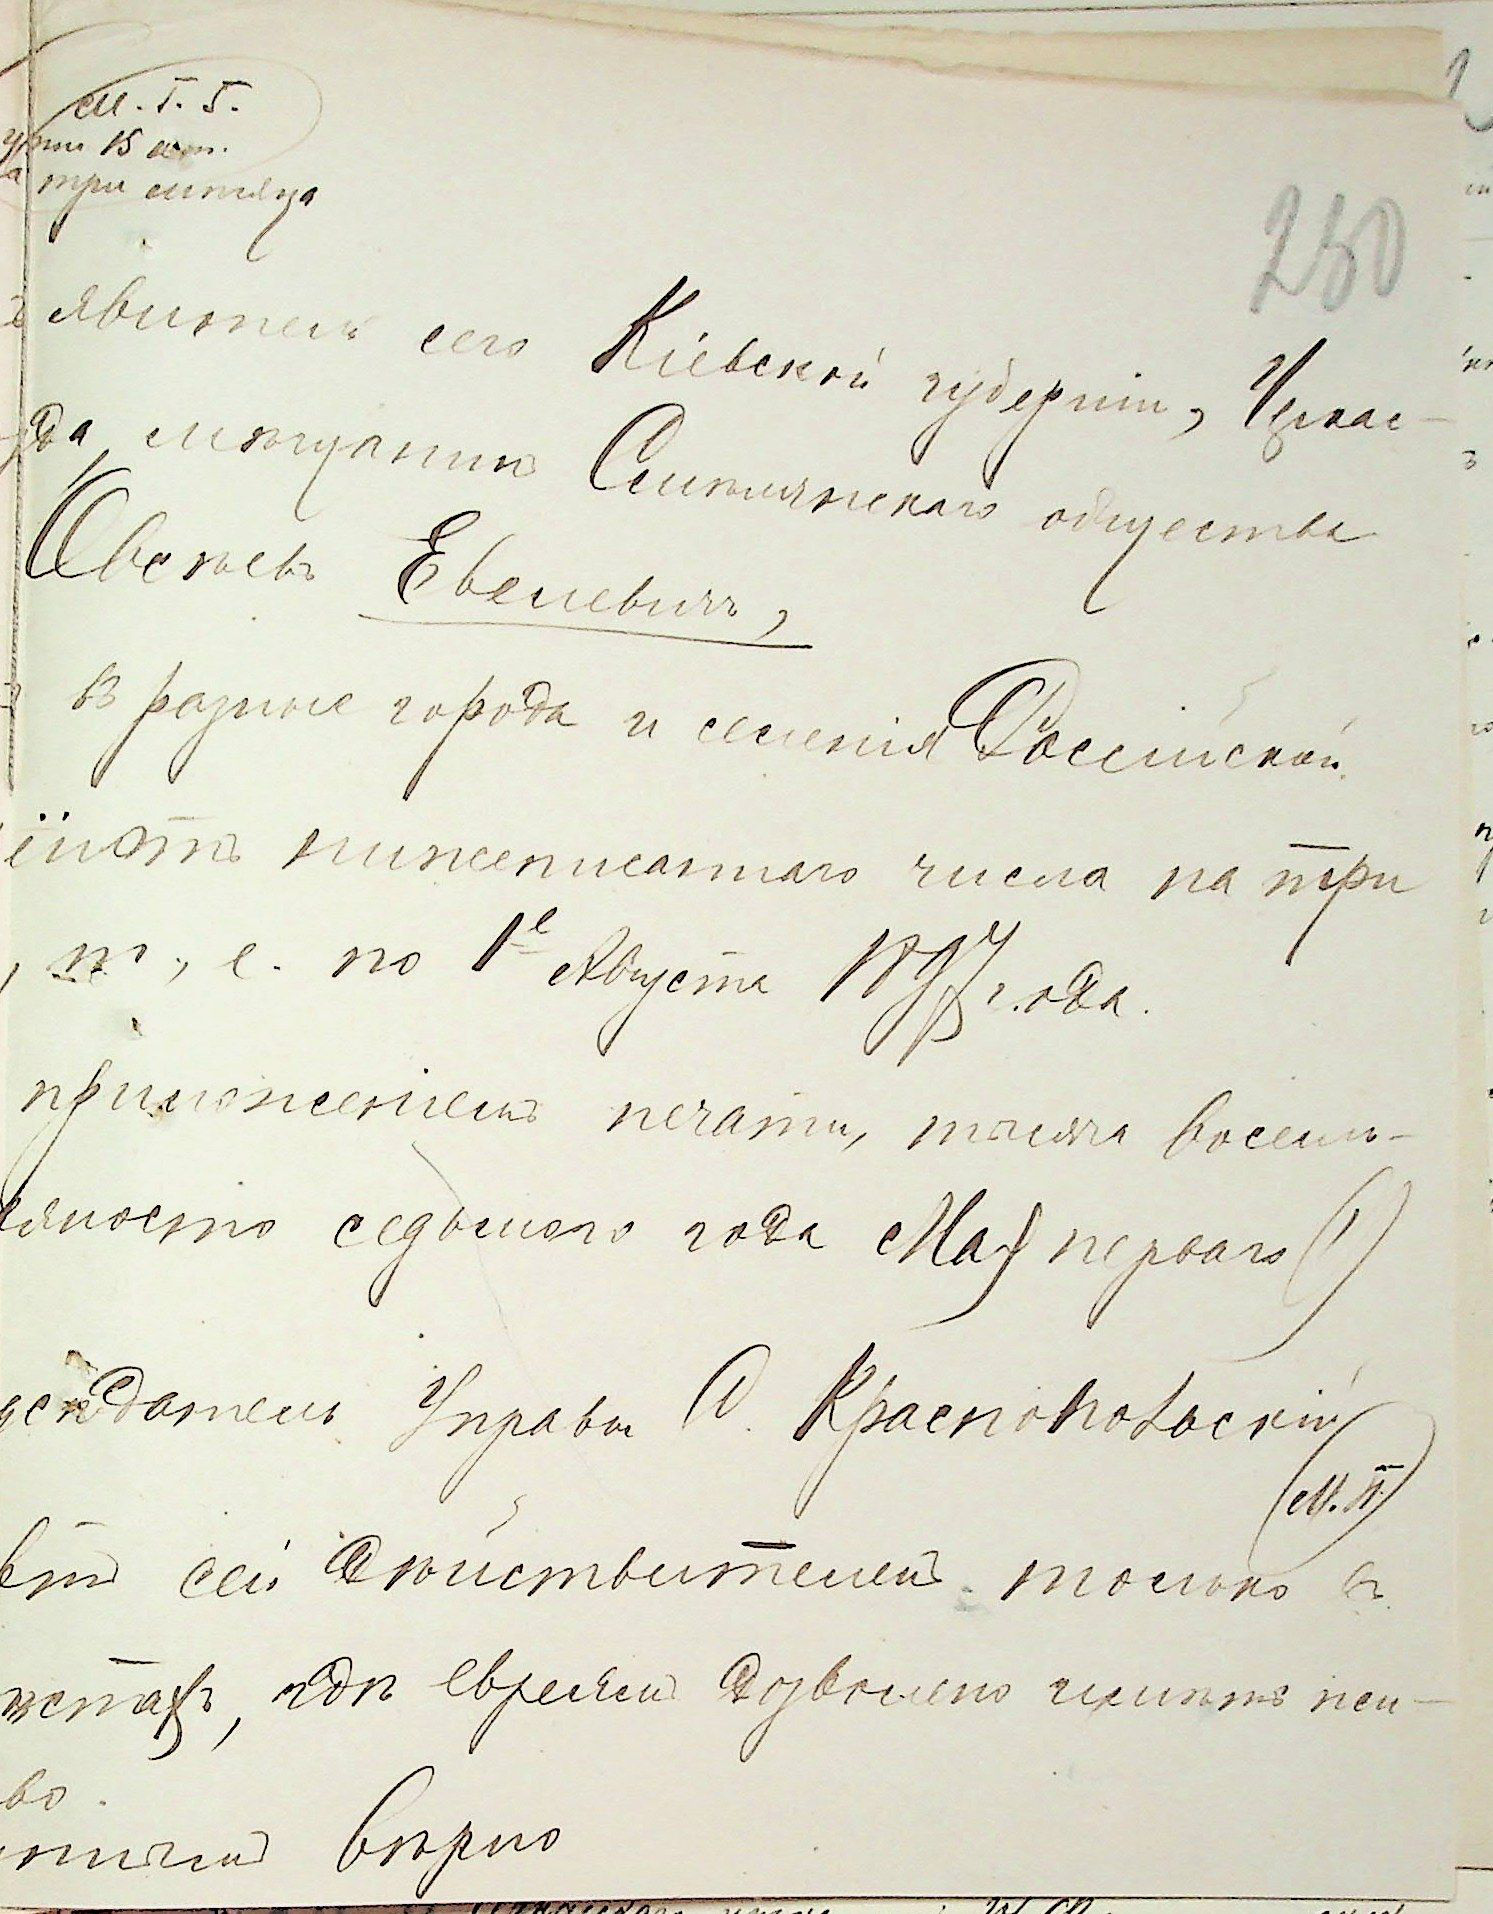 М. Г. Г.
15 коп.
три месяца
250
явитель сего Кіевской губерніи, Черкас-
да, мѣщанинъ Смѣлянскаго общества
Овсѣевъ Евелевичъ,
въ разные города и селенія Россійской
отъ нижеписаннаго числа на три
, т. е. по 1е Августа 1897 года.
приложеніемъ печати, тысяча восемь-
вяносто седьмого года Мая перваго (1)
дсѣдатель Управы А. Краснопольскій
(М. П.)
сей дѣйствителенъ только въ
мѣстахъ, гдѣ евреямъ дозволено жить
во.
вѣрно